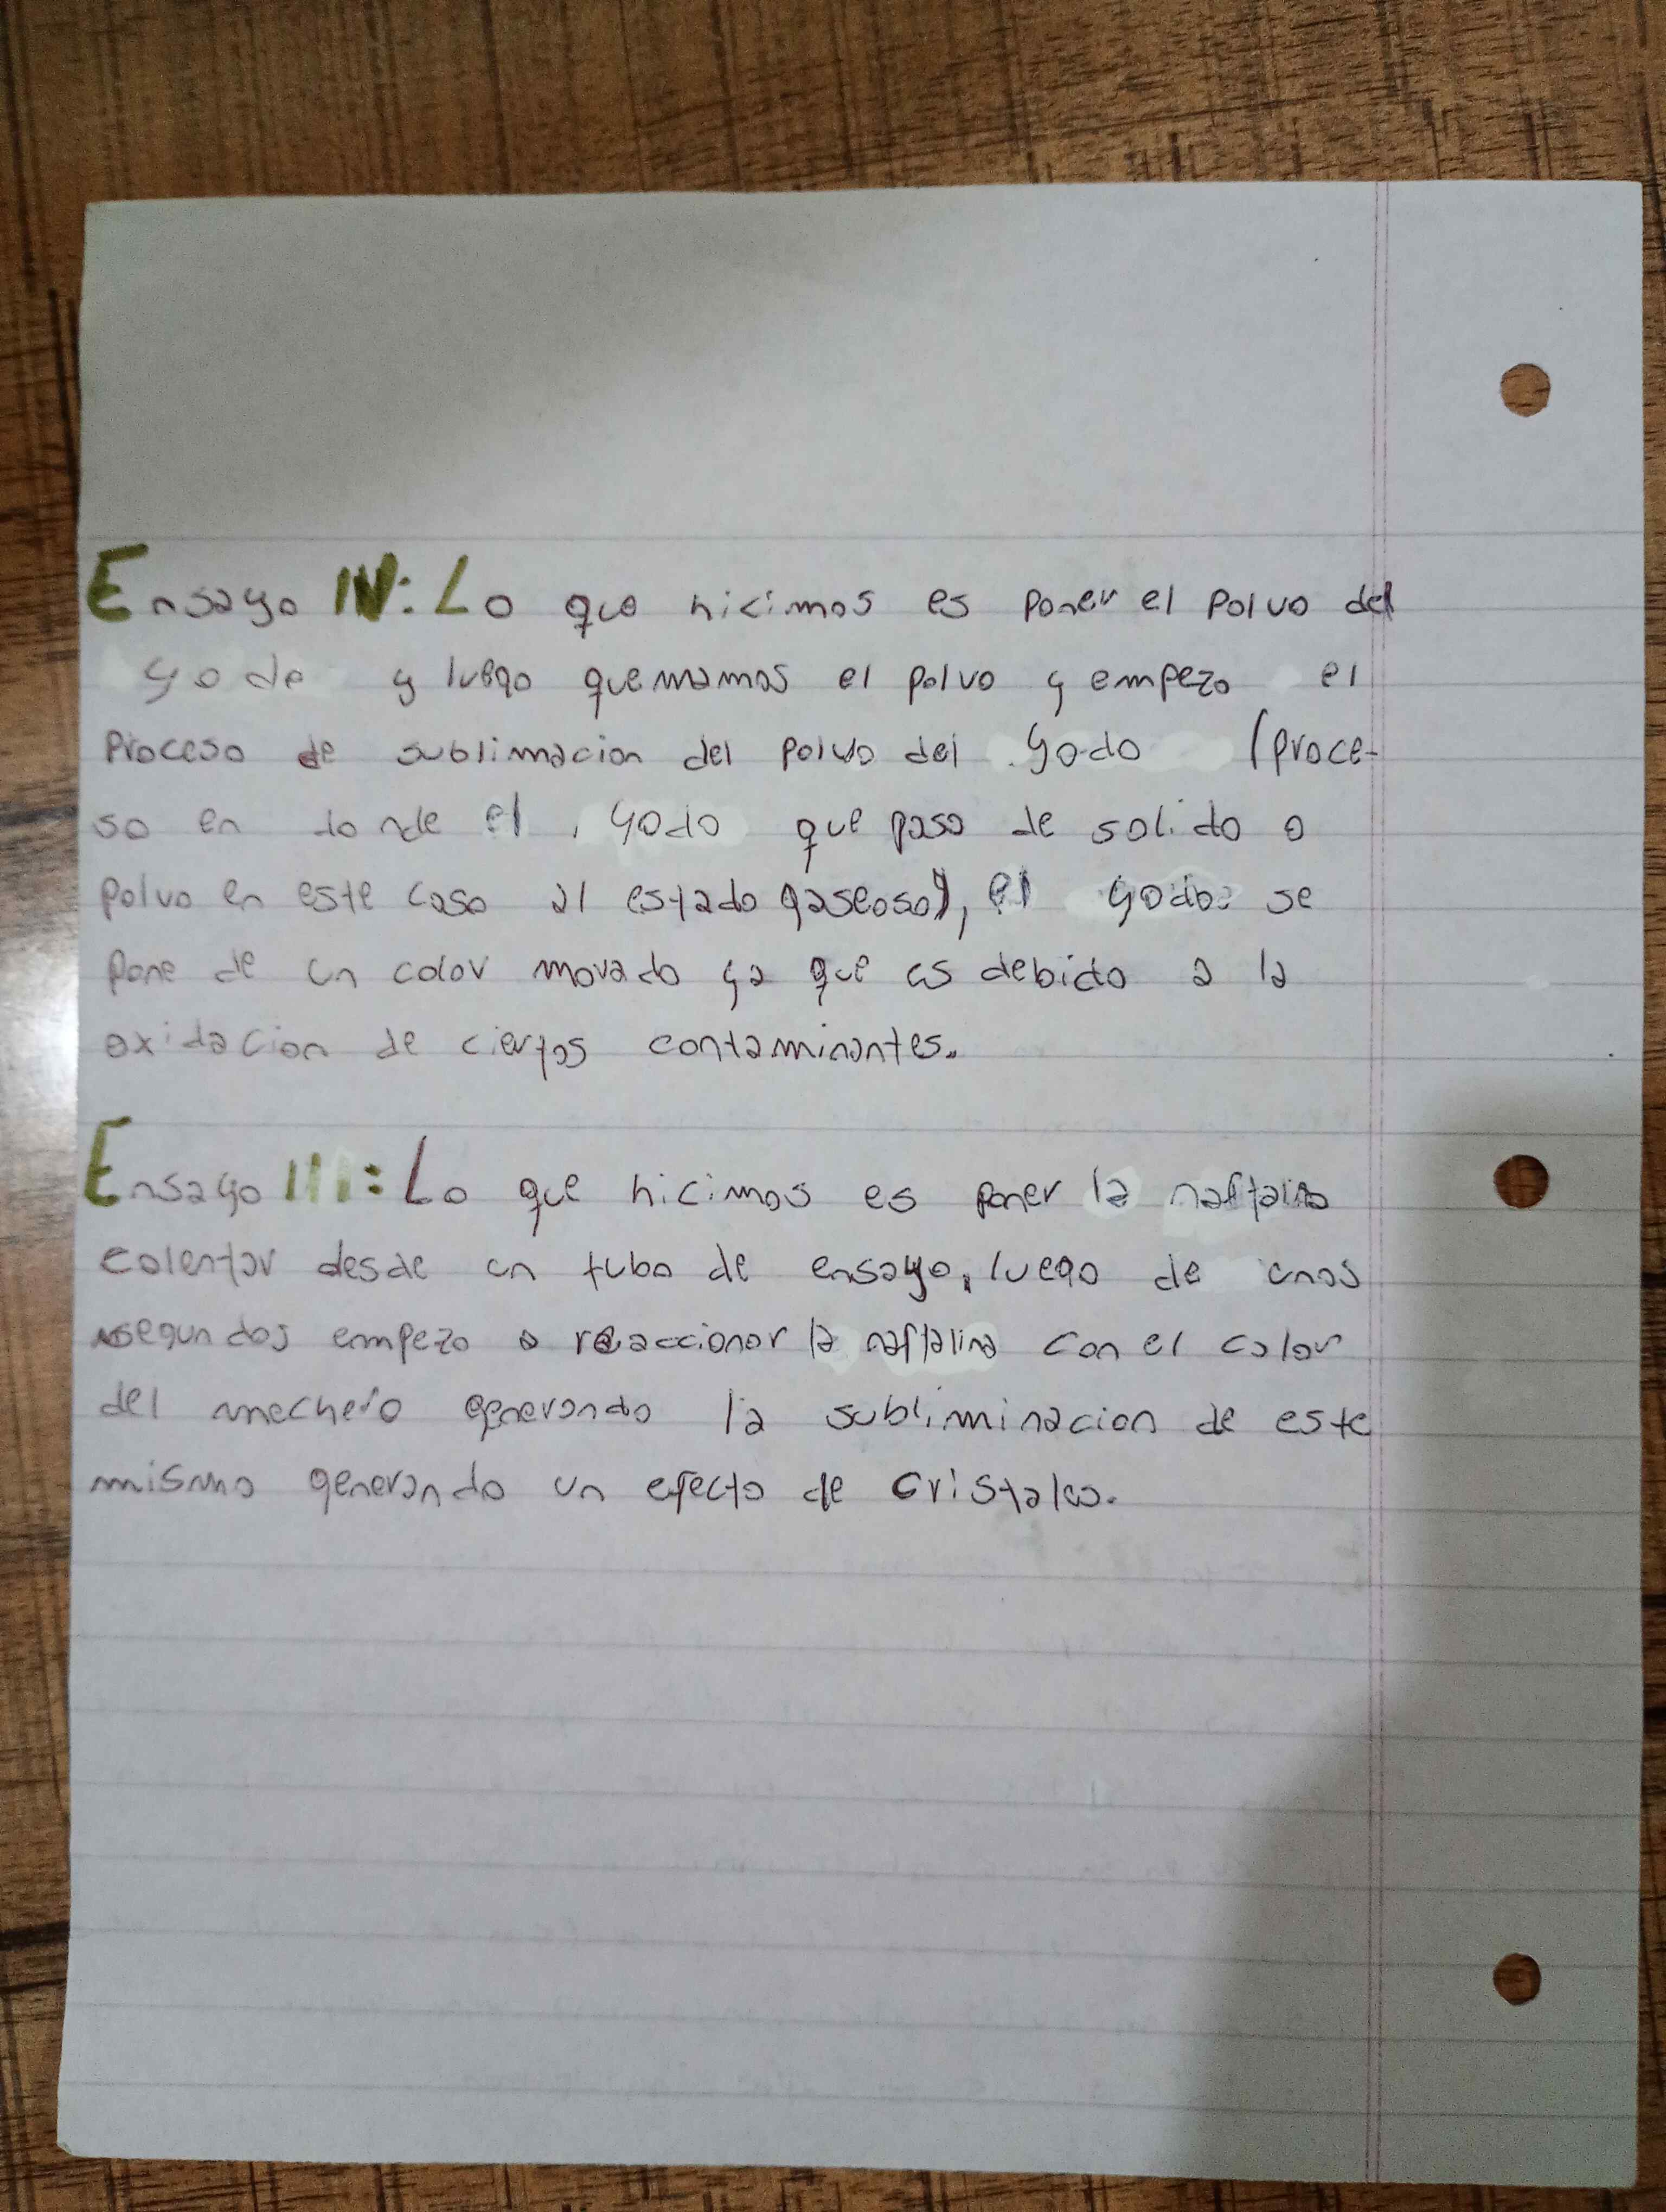 Ensayo IV: Lo que hicimos es poner el polvo del
yodo y luego quemamos el polvo y empezo el
proceso de sublimacion del polvo del yodo (proce-
so en donde el yodo que paso de solido o
polvo en este caso al estado gaseoso), el yodo se
pone de un color morado ya que es debido a la
oxidacion de ciertos contaminantes.
Ensayo III: Lo que hicimos es poner la naftalina
calentar desde un tubo de ensayo, luego de unos
segundos empezo a reaccionar la naftalina con el calor
del mechero generando la subliminacion de este
mismo generando un efecto de cristales.